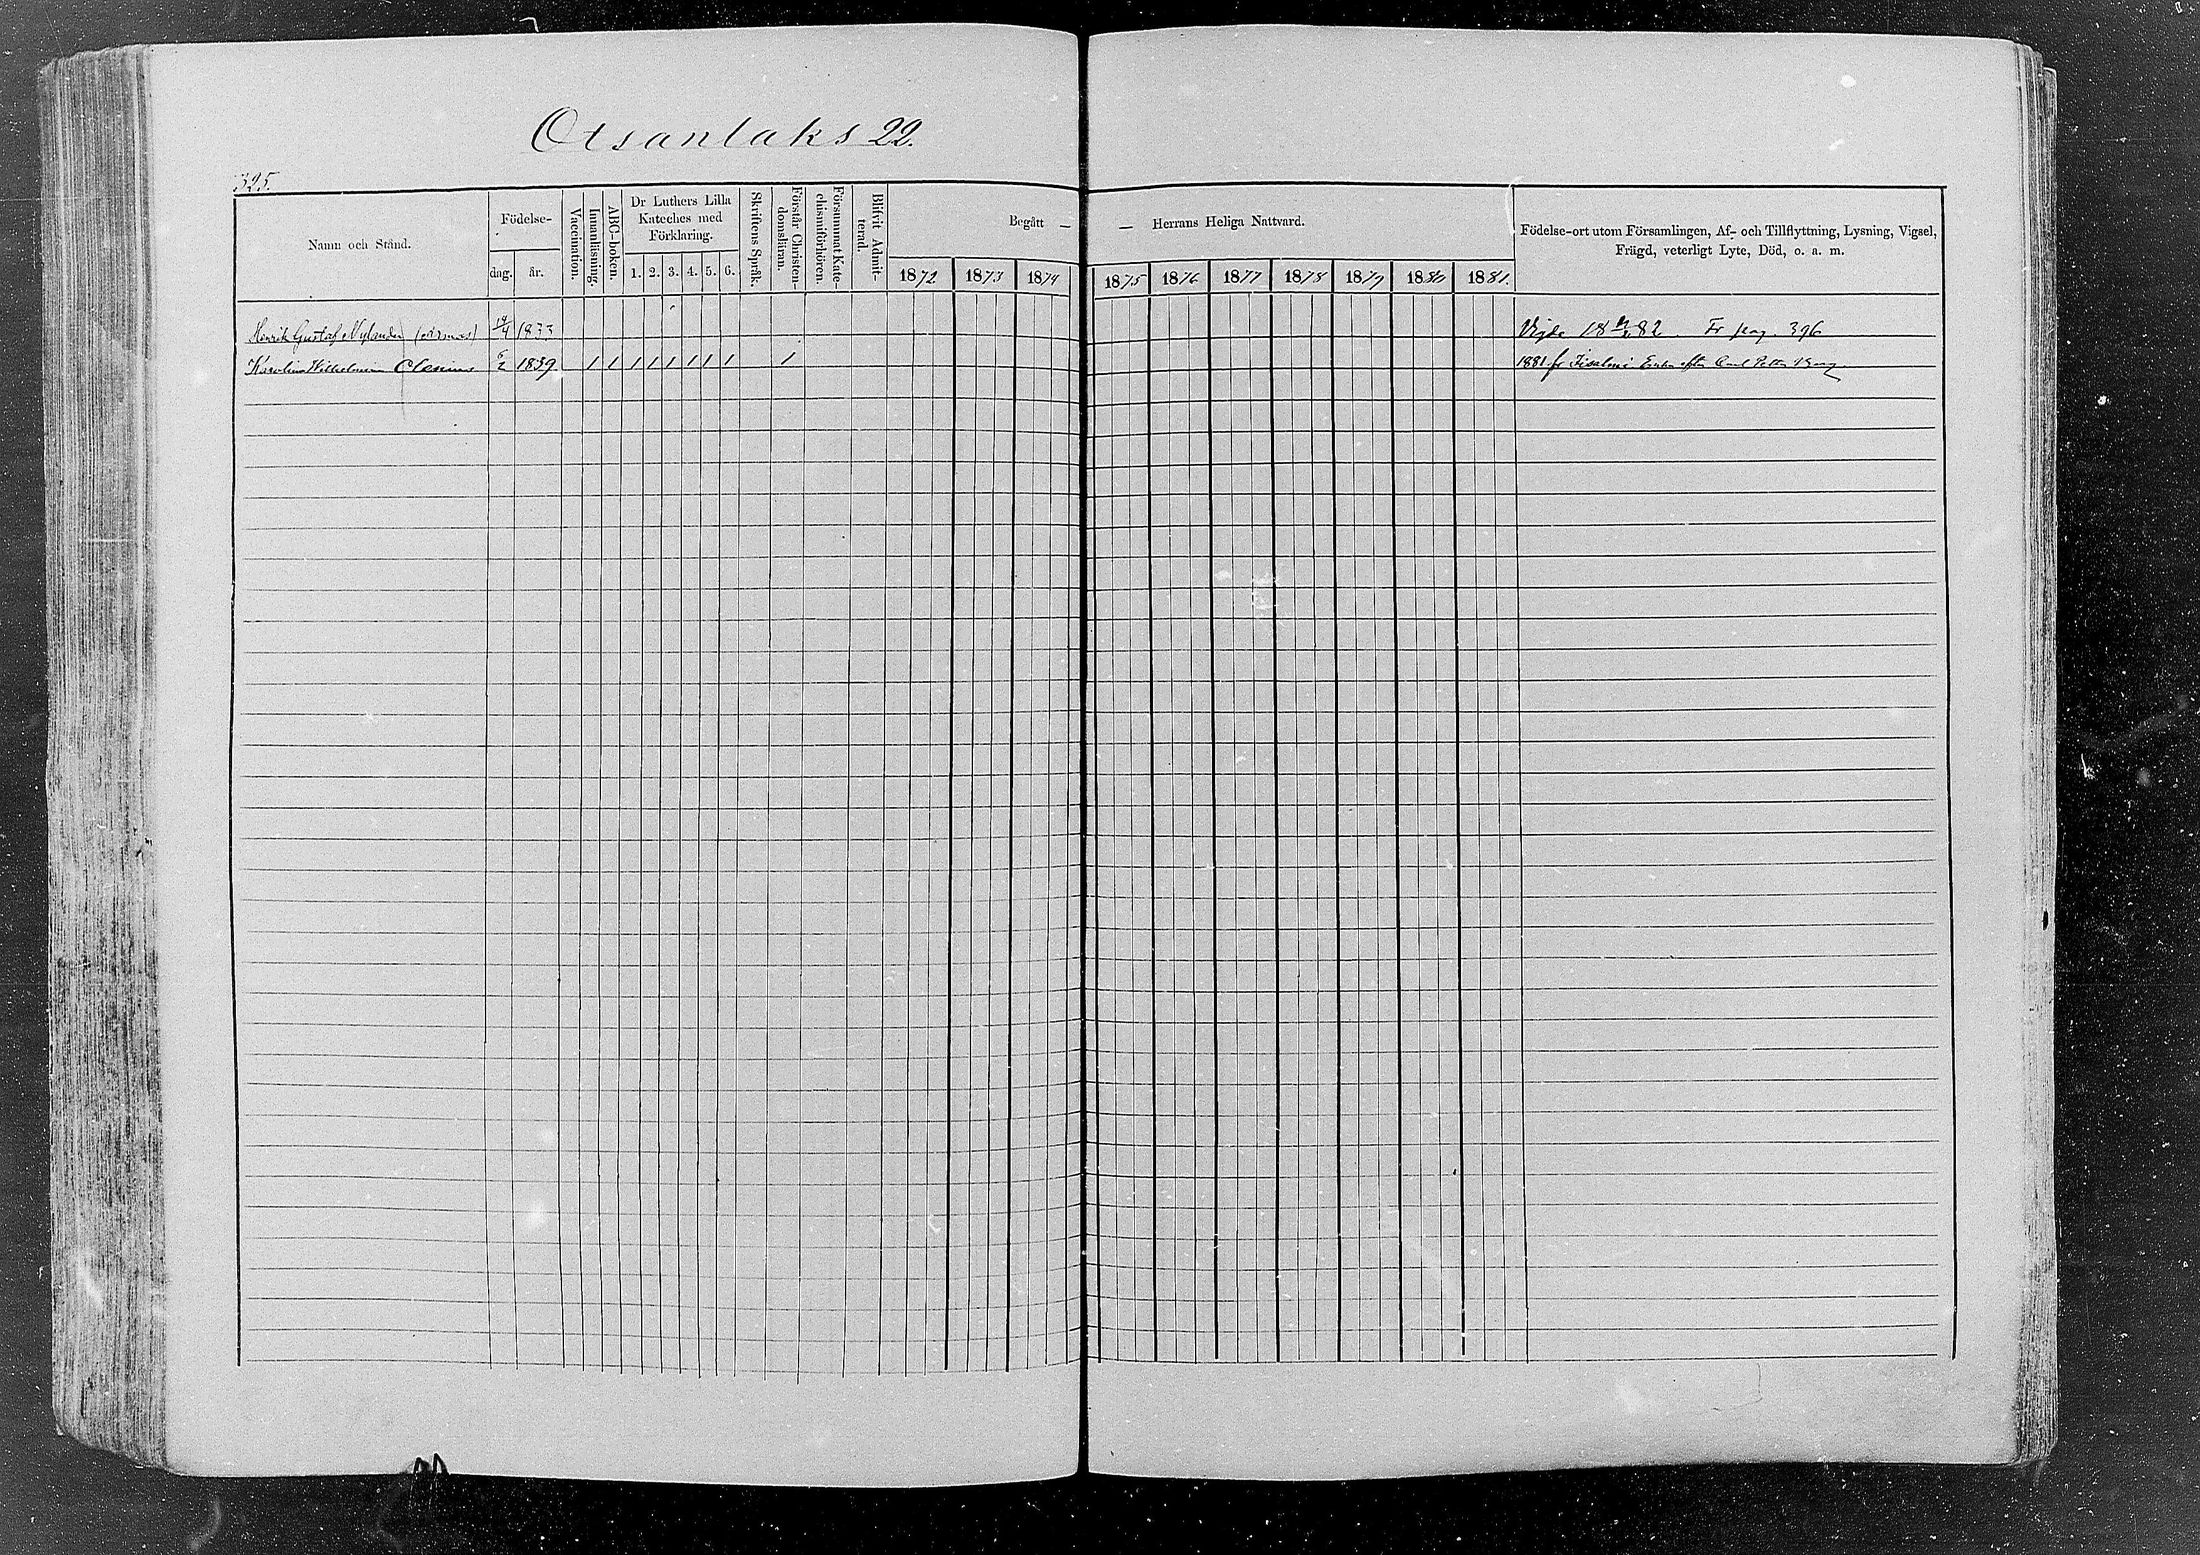 Otsanlaks 22.
325.
Namn och Stånd.
Födelse-
dag. år.
Vaccination.
Innanläsning.
ABC-boken.
Dr Luthers Lilla
Kateches med
Förklaring.
1. 2. 3. 4. 5. 6.
Skriftens Språk.
Förstår Christen-
domsläran.
Försummat Kate-
chismiförhören.
Blifvit Admit-
terad.
Begått —
1872 1873 1874
— Herrans Heliga Nattvard.
1875 1876 1877 1878 1879 1880 1881.
Födelse-ort utom Församlingen, Af- och Tillflyttning, Lysning, Vigsel,
Frägd, veterligt Lyte, Död, o. a. m.
Henrik Gustaf Nylander 1833 Vigde 18 82 Fr pag. 396
Karolina Wilhelmina Clenius 6/2 1839 1 1 1 1 1 1 1 1 1 1881 fr Iisalmi Enka efter Carl Petter